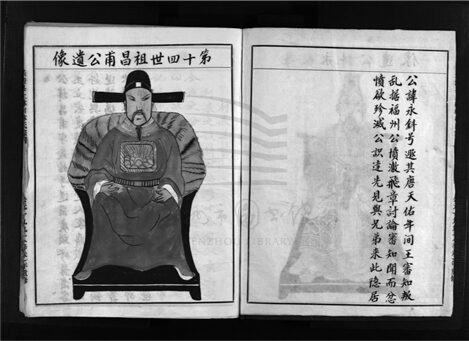 第十四世祖昌甫公遺像
公諱永釬号遜其唐天佑年间王審知叛
乱據福州公憤激飛章討論審知聞而忿
憤欲殄滅公識達先見與兄弟来此隐居